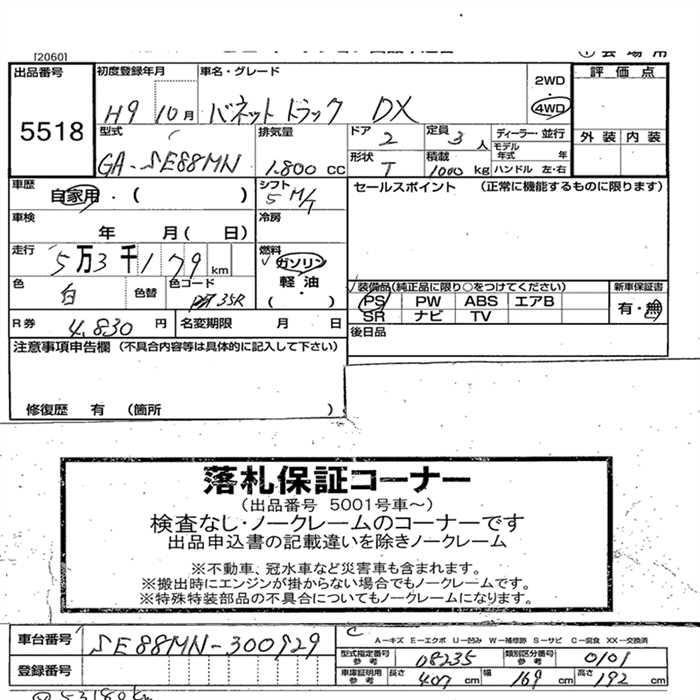 [2060]
出品番号 初度登録年月 車名・グレード 2WD 評価点
5518 H9 10月 バネットトラック DX 4WD
型式 排気量 ドア 2 定員 3人 ディーラー・並行 外装 内装
モデル年式 年
GA-SE88MN 1.800 cc 形状 T 積載 1000 kg ハンドル 左・右
車歴 自家用・( ) シフト 5 M/T セールスポイント (正常に機能するものに限ります)
車検 年 月(日) 冷房
走行 5万3千179km 燃料 ガソリン
軽油・( )
色 白 色替 色コード 35R 装備品(純正品に限り○をつけてください) 新車保証書
PS PW ABS エアB 有・無
SR ナビ TV
R券 4,830円 名変期限 月 日 後日品
注意事項申告欄(不具合内容等は具体的に記入して下さい)
修復歴 有 (箇所 )
落札保証コーナー
(出品番号 5001号車〜)
検査なし・ノークレームのコーナーです
出品申込書の記載違いを除きノークレーム
※不動車、冠水車など災害車も含まれます。
※搬出時にエンジンが掛からない場合でもノークレームです。
※特殊特装部品の不具合についてもノークレームになります。
車台番号 SE88MN-300929 A-キズ E-エクボ U-凹み W-補修跡 S-サビ C-腐食 XX-交換済
型式指定番号 参考 08235 類別区分番号 参考 0101
登録番号 車庫証明用 参考 長さ 407 cm 幅 169 cm 高さ 192 cm
53180km